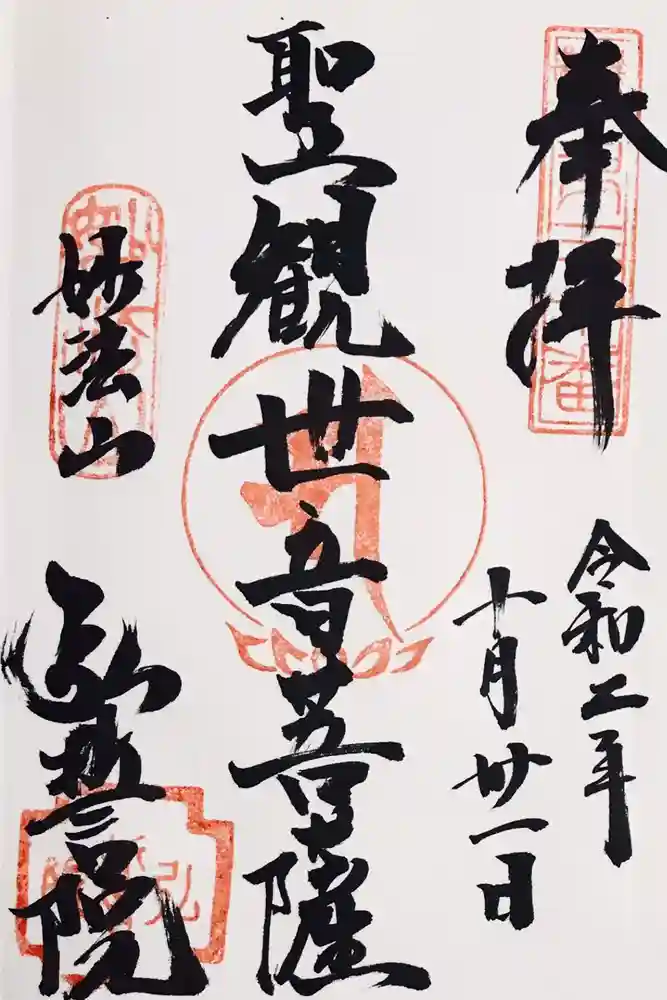 奉拝
令和二年
十月廿一日
聖観世音菩薩
妙法山
弘誓院